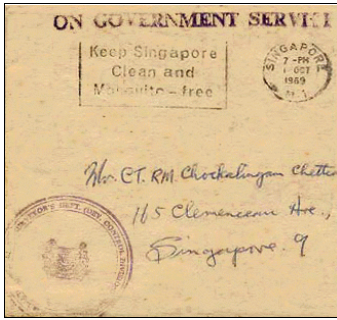 ON GOVERNMENT SERVICE
Keep Singapore
Clean and
Mosquito - free
SINGAPORE
7 - PM
OCT
1969
CT. RM. Chockalingam Chettiar
165 Clemenceau Ave.,
Singapore. 9
DEPT. (GOV. CONTROL DIVISION